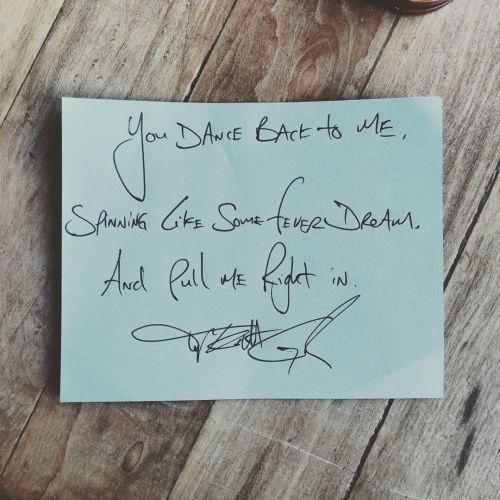 You DANCE BACK to ME.
SPINNING LIKE SOME fEVER DREAM.
And Pull ME Right iN.